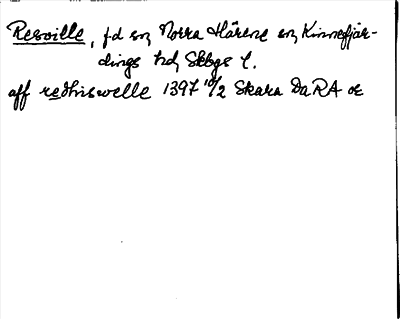 Resville, fd sn Norra Härene sn, Kinnefjär-
dings hd, Skbgs l.
aff redhiswelle 1397 10/2 Skara DaRA or